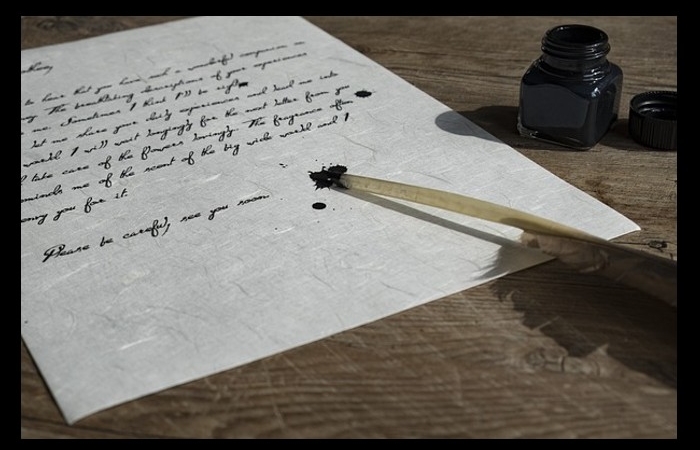 to hear that you have such a wonderful companion on
The breathtaking descriptions of your experiences
me. Sometimes I think I'll be right
let me share your daily experiences and lead me into
world. I will wait longingly for the next letter from you
take care of the flowers lovingly. The fragrance often
reminds me of the scent of the big wide world and I
envy you for it.
Please be careful, see you soon.